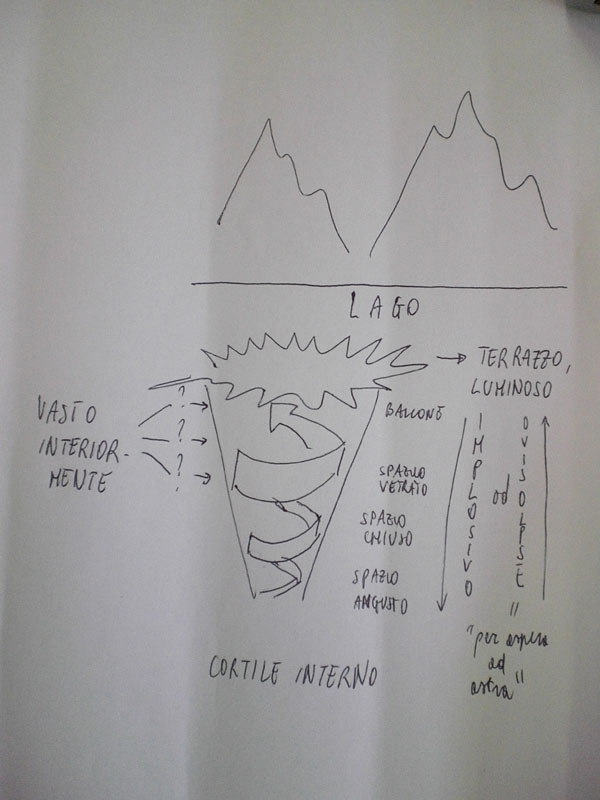 LAGO
TERRAZZO,
LUMINOSO
?
?
?
VASTO
INTERIOR-
MENTE
BALCONE
SPAZIO
VETRATO
SPAZIO
CHIUSO
SPAZIO
ANGUSTO
IMPLOSIVO
od
ESPLOSIVO
"
"per aspera
ad
astra"
CORTILE INTERNO